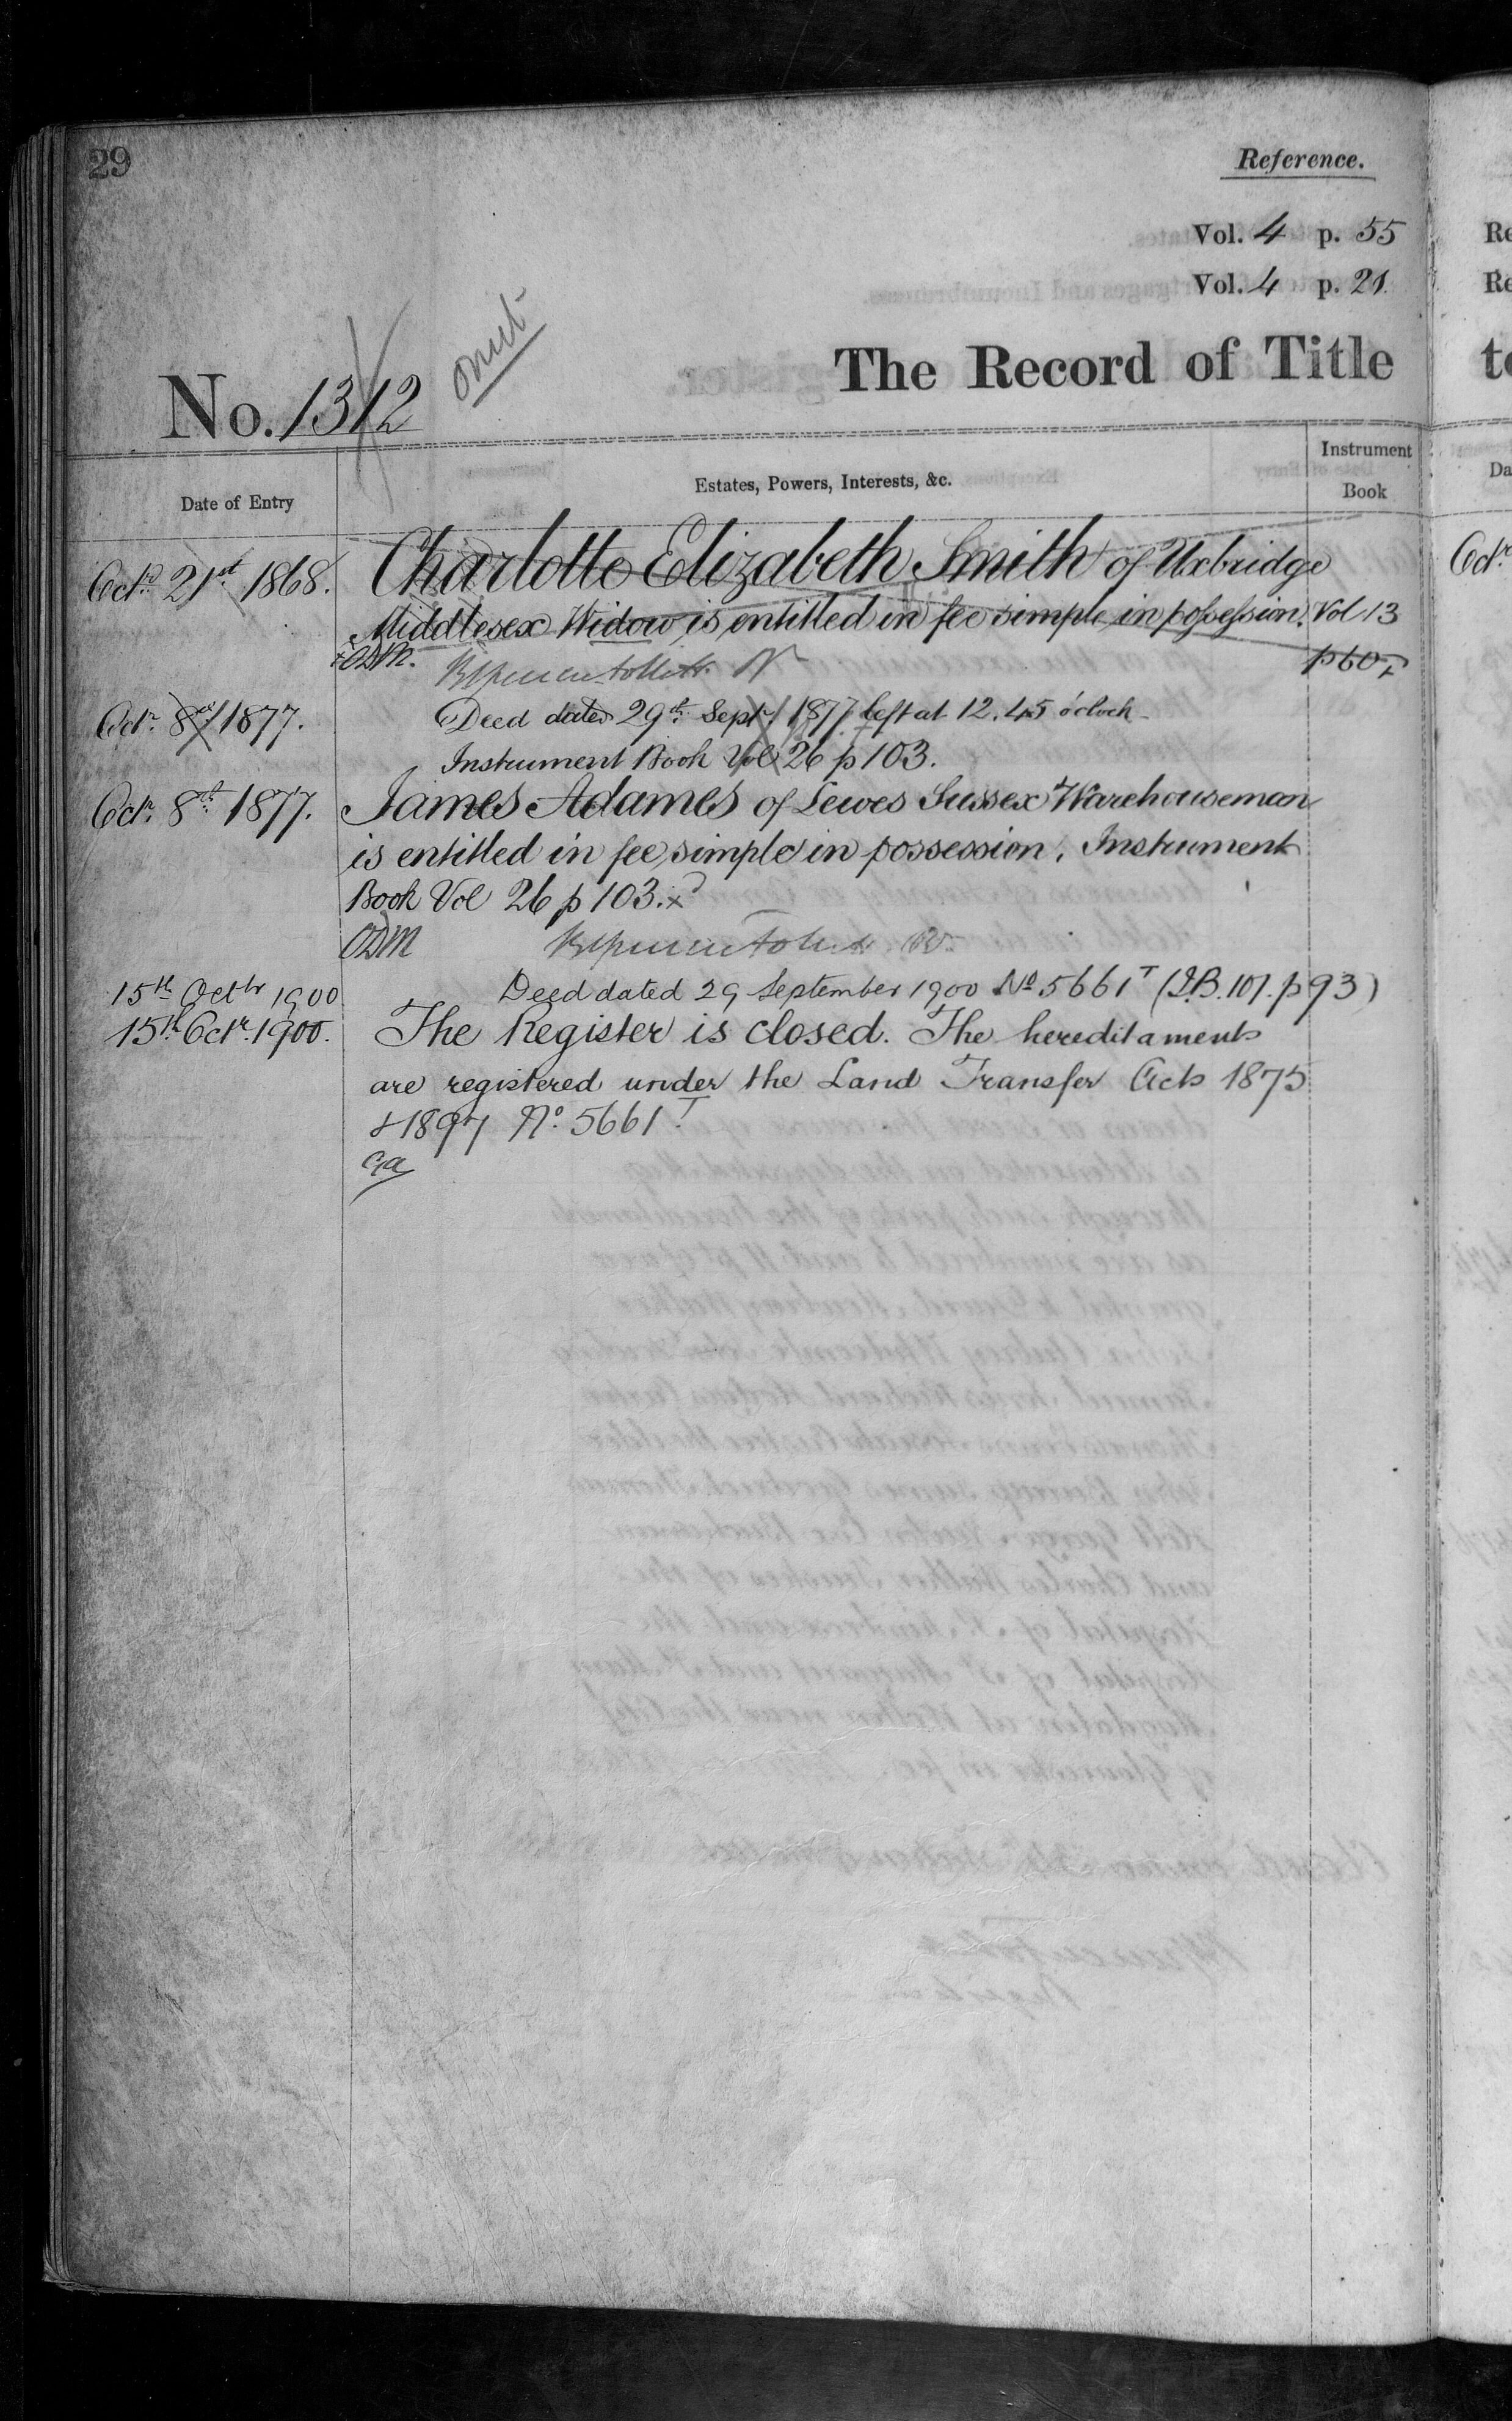 29
Reference.
Vol. 4 p. 55
Vol. 4 p. 21
omit
The Record of Title
No. 1312
Date of Entry
Estates, Powers, Interests, &c.
Instrument
Book
Octr. 21st 1868.
Charlotte Elizabeth Smith of Uxbridge
Middlesex Widow is entitled in fee simple in possession. Vol 13
p 60
Octr. 8th 1877.
Deed dated 29th Septr 1877 left at 12.45 o'clock
Instrument Book Vol 26 p 103.
Octr. 8th 1877.
James Adames of Lewes Sussex Warehouseman
is entitled in fee simple in possession. Instrument
Book Vol 26 p 103. x
15th Octbr 1900
Deed dated 29 September 1900 No 5661T (I.B. 107. p 93)
15th Octr. 1900.
The Register is closed. The hereditaments
are registered under the Land Transfer Acts 1875
& 1897 No. 5661T.
Re
Re
to
Da
Octr